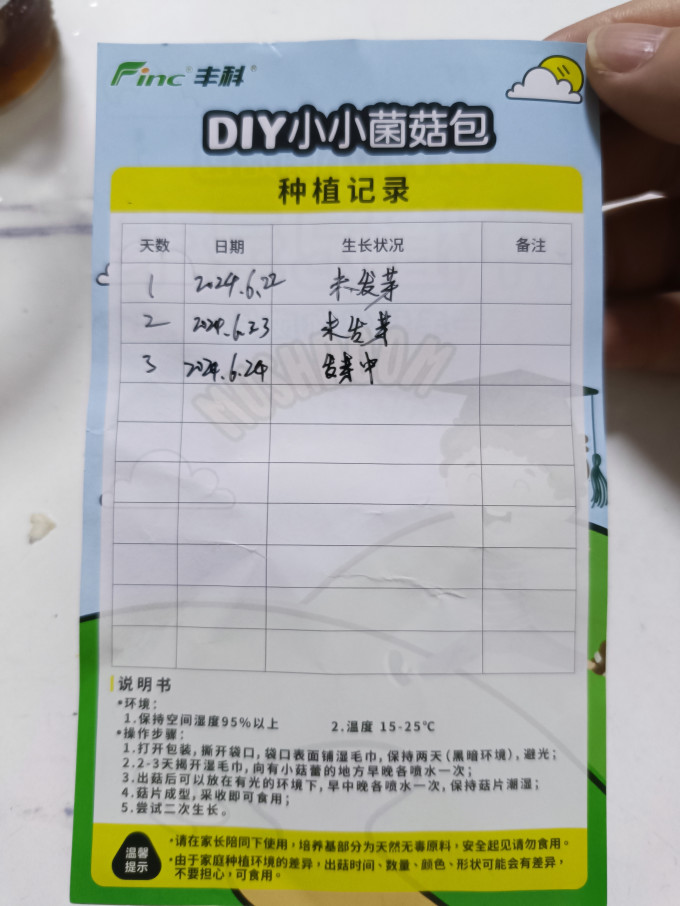 Finc® 丰科®
DIY小小菌菇包
种植记录
天数 日期 生长状况 备注
1 2024.6.22 未发芽
2 2024.6.23 未发芽
3 2024.6.24 发芽中
MUSHROOM
说明书
*环境：
1.保持空间湿度95%以上 2.温度 15-25℃
*操作步骤：
1.打开包装，撕开袋口，袋口表面铺湿毛巾，保持两天（黑暗环境），避光；
2.2-3天揭开湿毛巾，向有小菇蕾的地方早晚各喷水一次；
3.出菇后可以放在有光的环境下，早中晚各喷水一次，保持菇片潮湿；
4.菇片成型，采收即可食用；
5.尝试二次生长。
温馨
提示
·请在家长陪同下使用，培养基部分为天然无毒原料，安全起见请勿食用。
·由于家庭种植环境的差异，出菇时间、数量、颜色、形状可能会有差异，
不要担心，可食用。